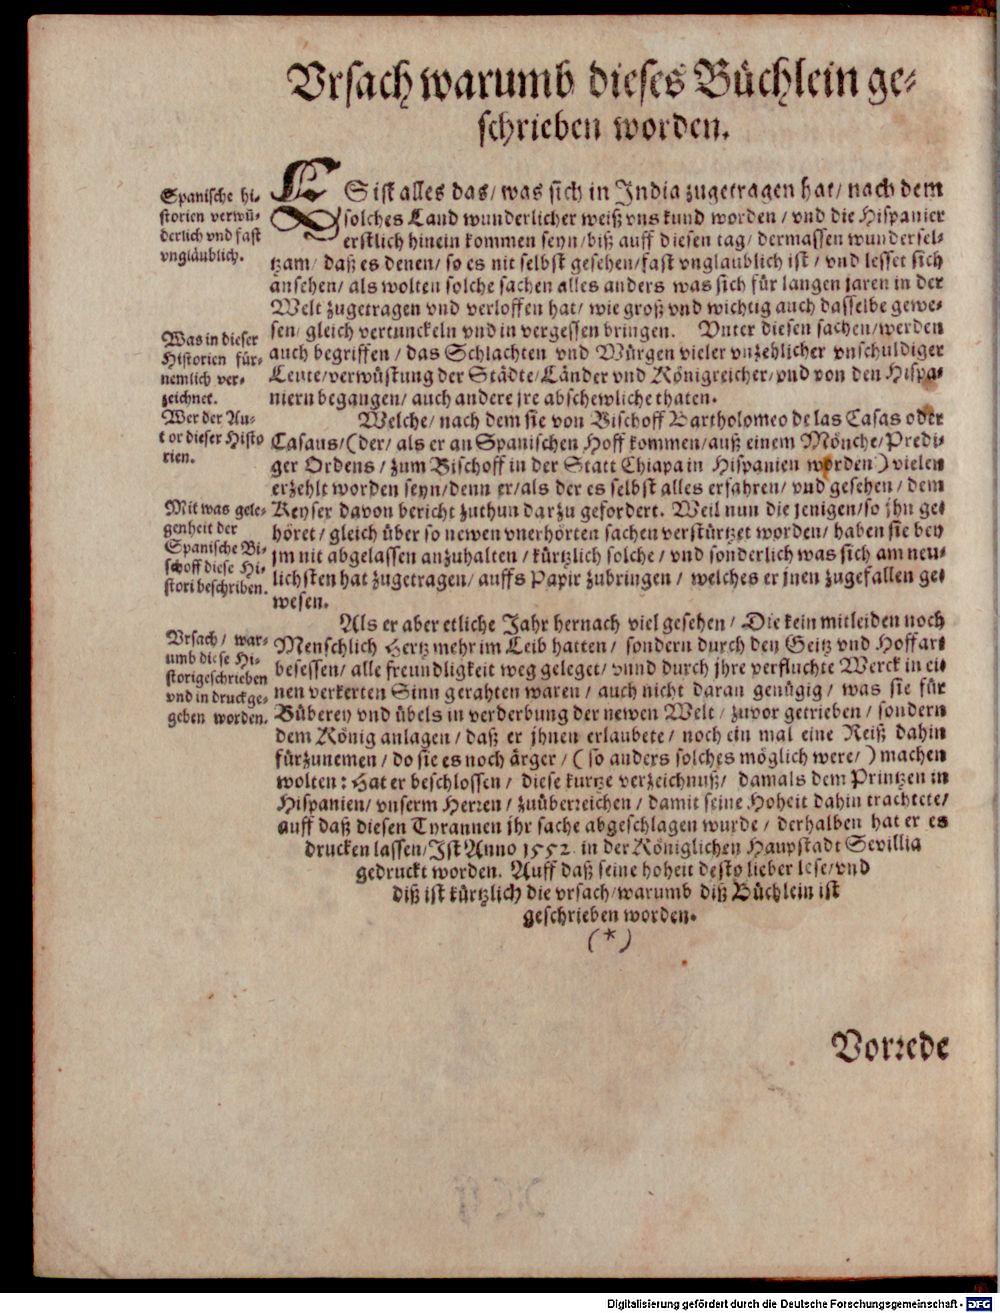 Vrsach warumb dieses Büchlein ge-
schrieben worden.
Spanische hi-
storien verwü-
derlich vnd fast
vngläublich.
Was in dieser
Historien für-
nemlich ver-
zeichnet.
Wer der Au-
tor dieser Histo
rien.
Mit was gele-
genheit der
Spanische Bi-
schoff diese Hi-
stori beschriben.
Vrsach / war-
umb diese Hi-
stori geschrieben
vnd in druck ge-
geben worden.
ES ist alles das / was sich in India zugetragen hat / nach dem
solches Land wunderlicher weiß vns kund worden / vnd die Hispanier
erstlich hinein kommen seyn / biß auff diesen tag / dermassen wundersel-
tzam / daß es denen / so es nit selbst gesehen / fast vnglaublich ist / vnd lesset sich
ansehen / als wolten solche sachen alles anders was sich für langen jaren in der
Welt zugetragen vnd verloffen hat / wie groß vnd wichtig auch dasselbe gewe-
sen / gleich vertunckeln vnd in vergessen bringen. Vnter diesen sachen / werden
auch begriffen / das Schlachten vnd Würgen vieler vnzehlicher vnschuldiger
Leute / verwüstung der Städte / Länder vnd Königreicher / vnd von den Hispa-
niern begangen / auch andere jre abschewliche thaten.
Welche / nach dem sie von Bischoff Bartholomeo de las Casas oder
Casaus / (der / als er an Spanischen Hoff kommen / auß einem Mönche / Predi-
ger Ordens / zum Bischoff in der Statt Chiapa in Hispanien worden) vielen
erzehlt worden seyn / denn er / als der es selbst alles erfahren / vnd gesehen / dem
Keyser davon bericht zuthun darzu gefordert. Weil nun die jenigen / so jhn ge-
höret / gleich über so newen vnerhörten sachen verstürtzet worden / haben sie bey
jm nit abgelassen anzuhalten / kürtzlich solche / vnd sonderlich was sich am neu-
lichsten hat zugetragen / auffs Papir zubringen / welches er jnen zugefallen ge-
wesen.
Als er aber etliche Jahr hernach viel gesehen / Die kein mitleiden noch
Menschlich Hertz mehr im Leib hatten / sondern durch den Geitz vnd Hoffart
besessen / alle freundligkeit weg geleget / vnnd durch jhre verfluchte Werck in ei-
nen verkerten Sinn gerahten waren / auch nicht daran genügig / was sie für
Büberey vnd übels in verderbung der newen Welt / zuvor getrieben / sondern
dem König anlagen / daß er jhnen erlaubete / noch ein mal eine Reiß dahin
fürzunemen / do sie es noch ärger / (so anders solches möglich were /) machen
wolten: Hat er beschlossen / diese kurtze verzeichnuß / damals dem Printzen in
Hispanien / vnserm Herren / zuüberreichen / damit seine Hoheit dahin trachtete /
auff daß diesen Tyrannen jhr sache abgeschlagen wurde / derhalben hat er es
drucken lassen / Ist Anno 1552. in der Königlichen Haupstadt Sevillia
gedruckt worden. Auff daß seine hoheit desto lieber lese / vnd
diß ist kürtzlich die vrsach / warumb diß Büchlein ist
geschrieben worden.
(*)
Vorrede
Digitalisierung gefördert durch die Deutsche Forschungsgemeinschaft - DFG